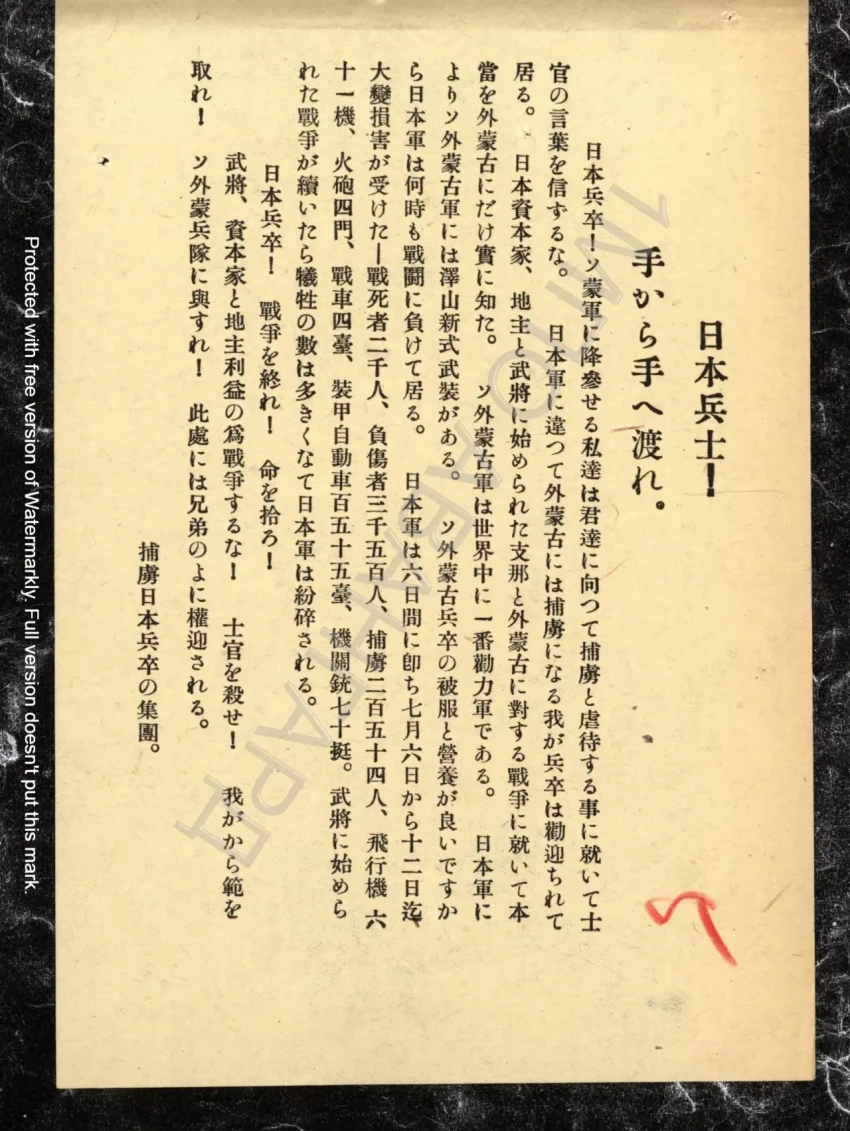 日本兵士！
手から手へ渡れ。
日本兵卒！ソ蒙軍に降參せる私達は君達に向つて捕虜と虐待する事に就いて士
官の言葉を信ずるな。 日本軍に違つて外蒙古には捕虜になる我が兵卒は勸迎ちれて
居る。 日本資本家、地主と武將に始められた支那と外蒙古に對する戰爭に就いて本
當を外蒙古にだけ實に知た。 ソ外蒙古軍は世界中に一番勸力軍である。 日本軍に
よりソ外蒙古軍には澤山新式武裝がある。 ソ外蒙古兵卒の被服と營養が良いですか
ら日本軍は何時も戰鬪に負けて居る。 日本軍は六日間に卽ち七月六日から十二日迄、
大變損害が受けた—戰死者二千人、負傷者三千五百人、捕虜二百五十四人、飛行機六
十一機、火砲四門、戰車四臺、裝甲自動車百五十五臺、機關銃七十挺。武將に始めら
れた戰爭が續いたら犧牲の數は多きくなて日本軍は紛碎される。
日本兵卒！ 戰爭を終れ！ 命を拾ろ！
武將、資本家と地主利益の爲戰爭するな！ 士官を殺せ！ 我がから範を
取れ！ ソ外蒙兵隊に與すれ！ 此處には兄弟のよに權迎される。
捕虜日本兵卒の集團。
1MHOABAHГАРД
Protected with free version of Watermarkly. Full version doesn't put this mark.